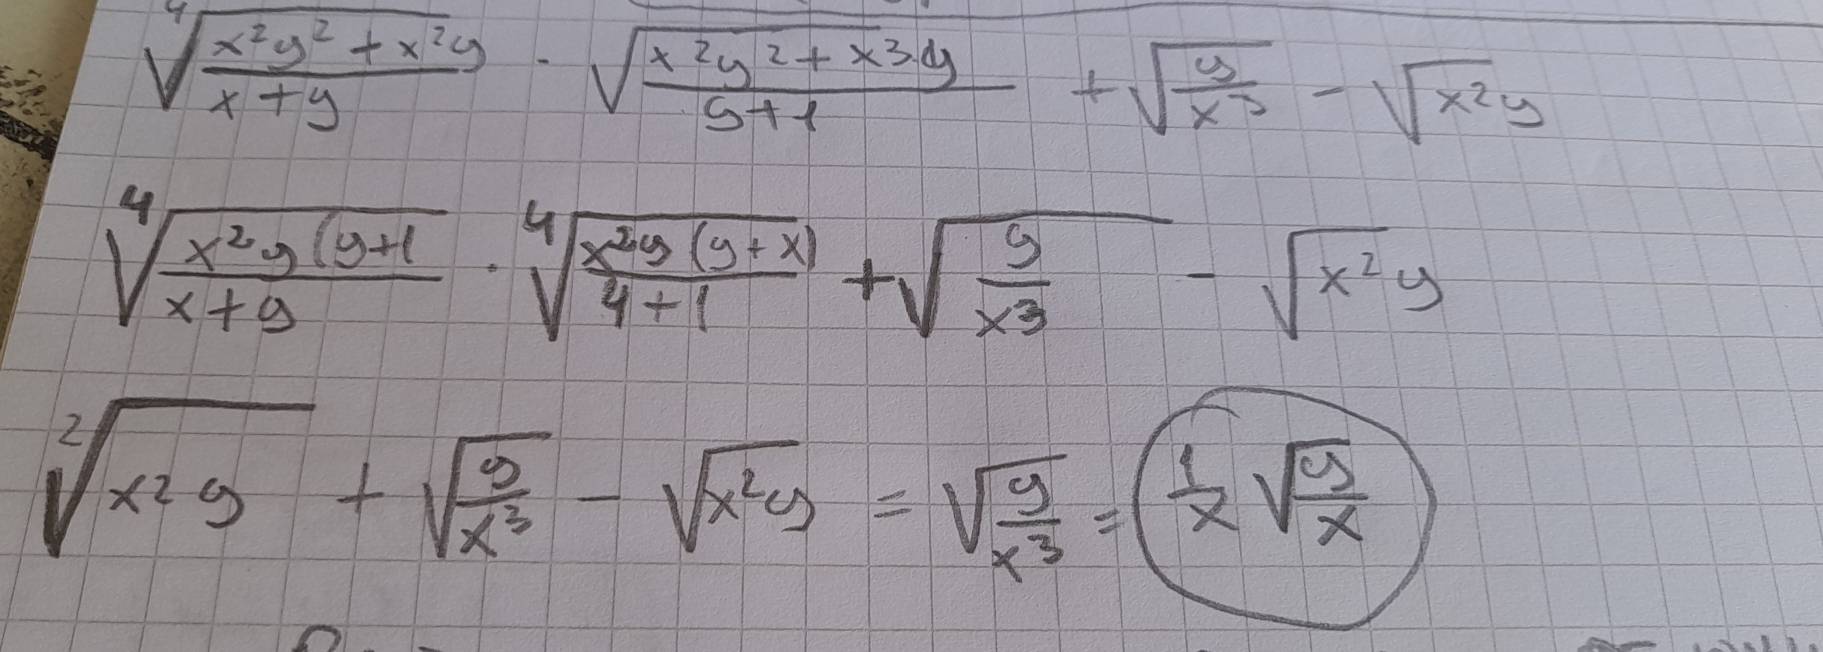 ⁴√((x²y² + x²y)/(x + y)) · √((x²y² + x³y)/(y + 1)) + √(y/x³) - √(x²y)
⁴√((x²y (y+1)/(x + y)) · ⁴√((x²y (y + x))/(4 + 1)) + √(y/x³) - √(x²y)
²√(x²y) + √(y/x³) - √(x²y) = √(y/x³) = 1/x √(y/x)